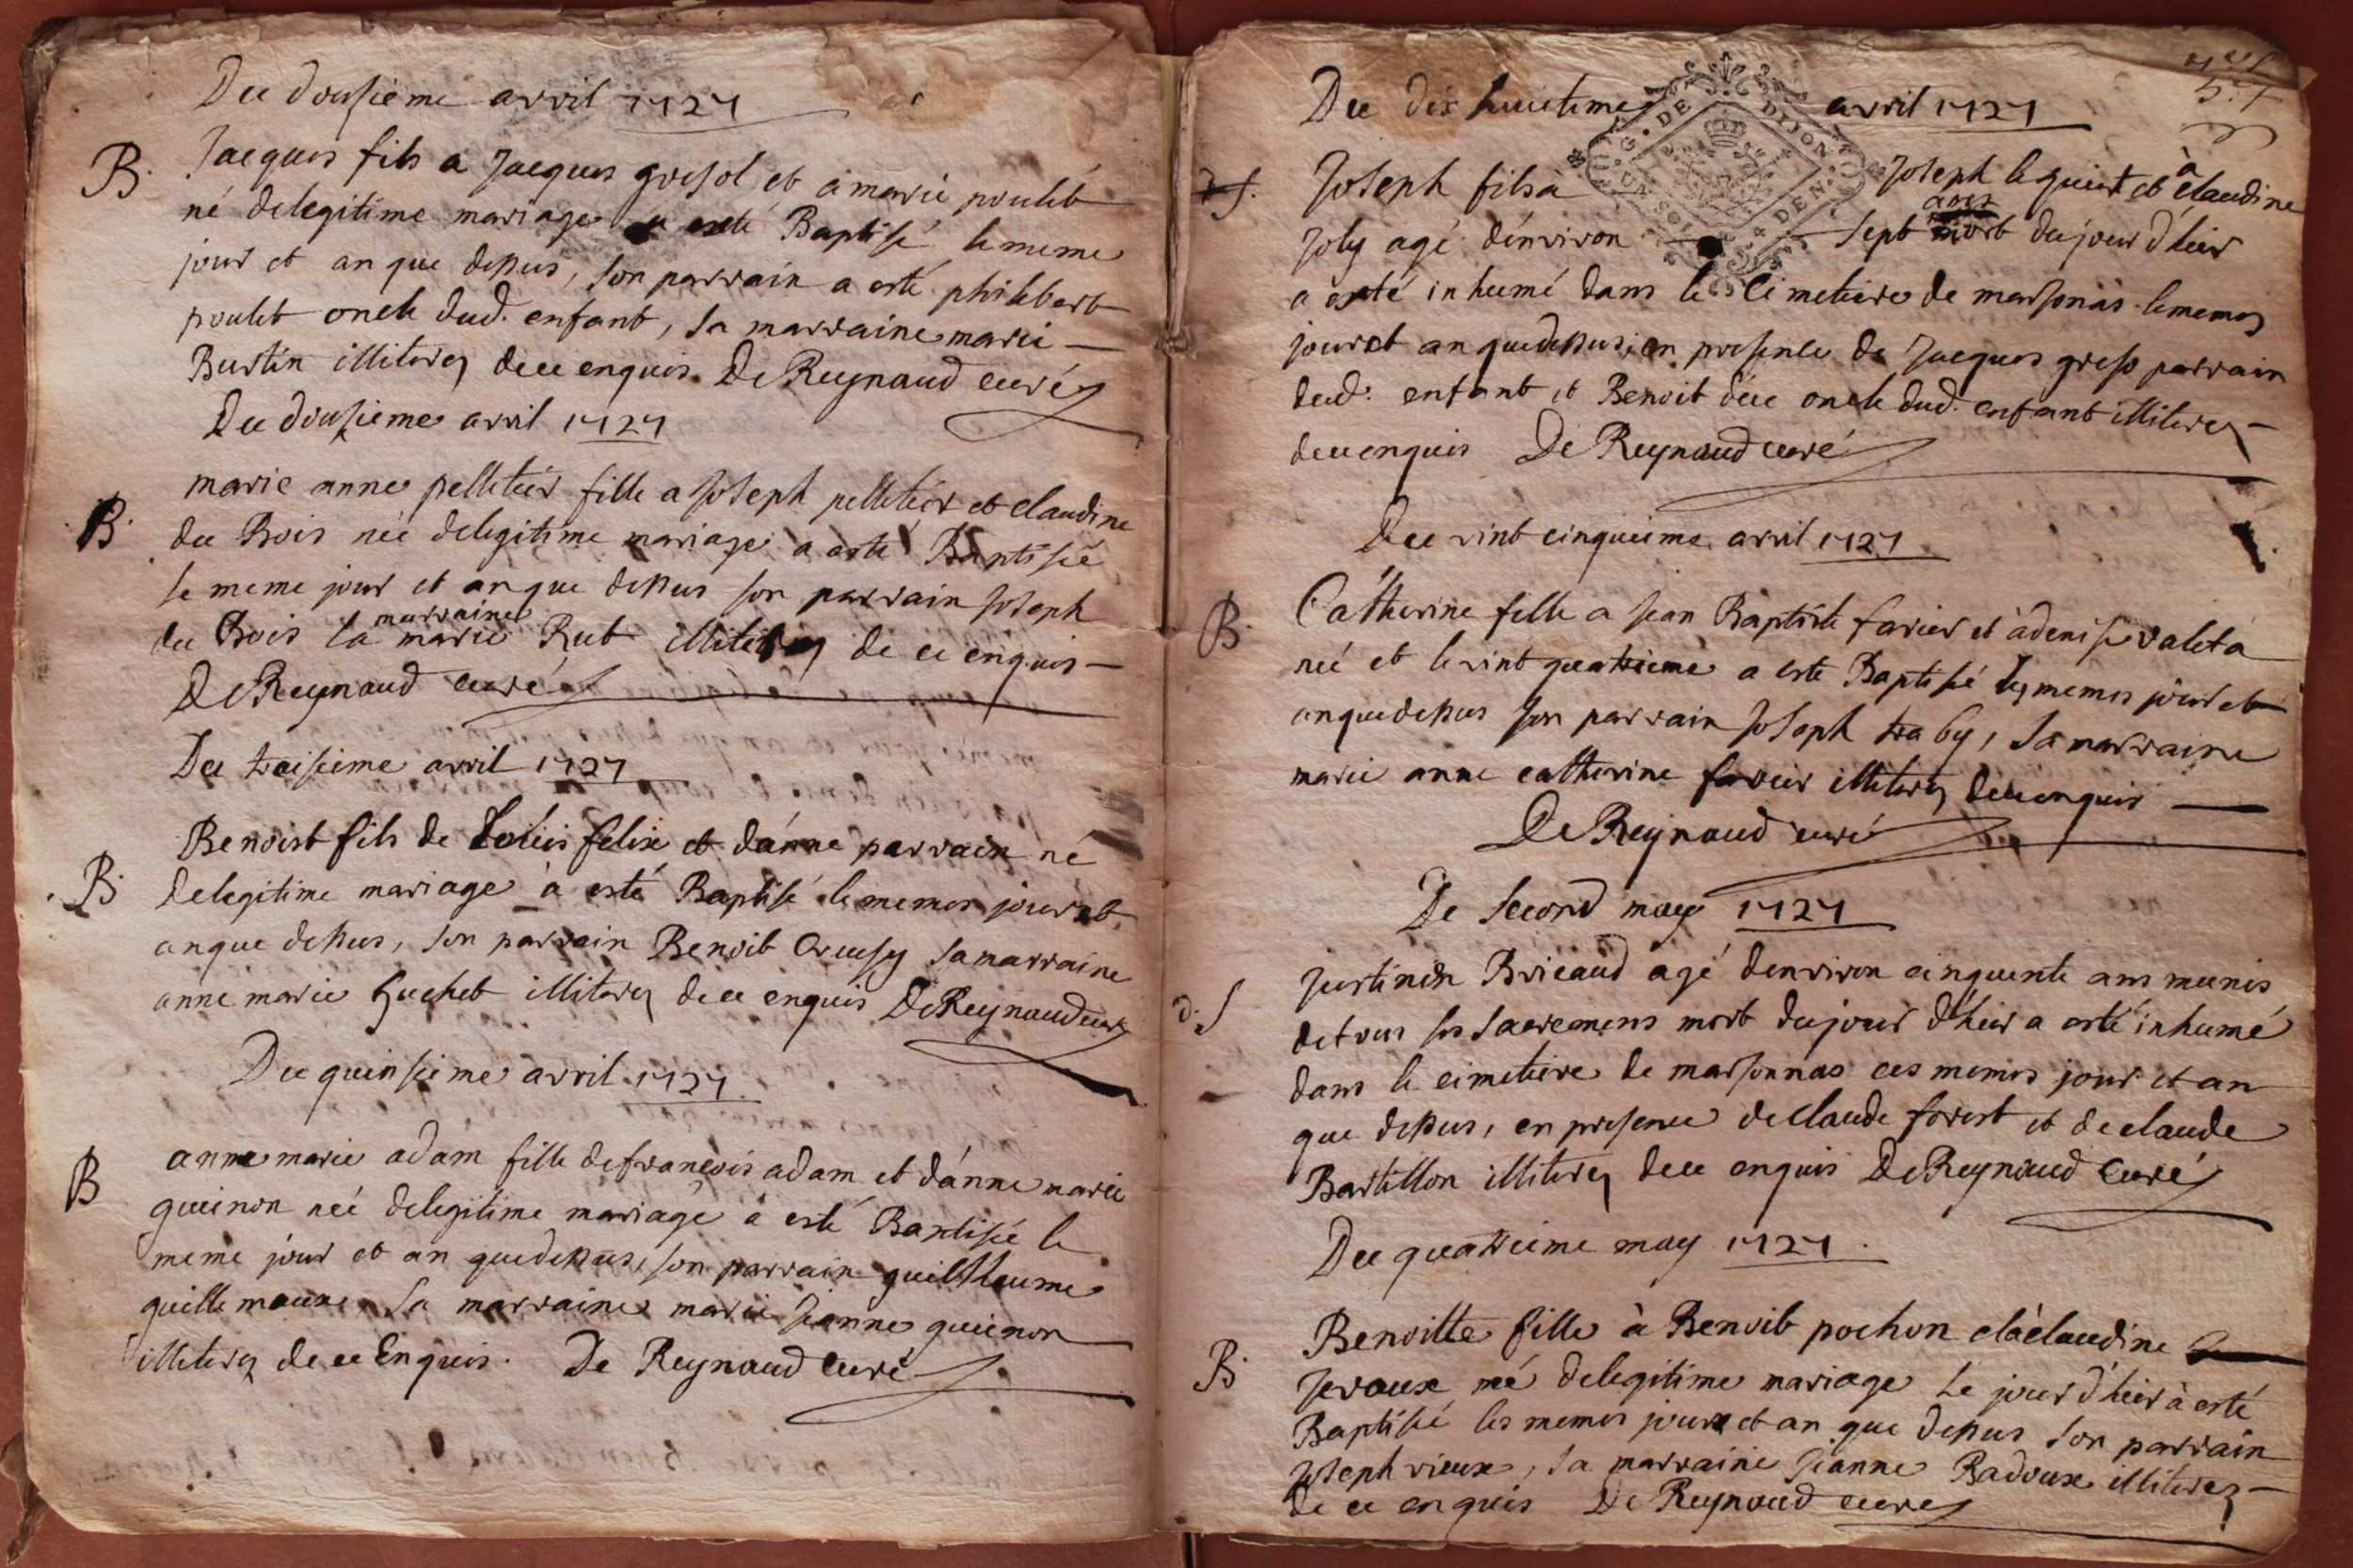 Du dousieme avril 1727
B.
Jacques fils a Jacques gresol et a marie poulet
né delegitime mariage a esté Baptisé lememe
jour et an que dessus, son parrain a esté philibert
poulet oncle dud. enfant, sa marraine marie
Burtin illiterez dece enquis. De Reynaud curé
Du dousieme avril 1727
B.
marie anne pelletier fille a Joseph pelletier et claudine
du Bois née delegitime mariage a esté Baptisée
le meme jour et an que dessus son parrain Joseph
du Bois sa marraine marie Rub illiterez de ce enquis
De Reynaud curé
Du traisieme avril 1727
B.
Benoist fils de Loüis felix et d'anne parrain né
delegitime mariage a esté Baptisé lememes jour et
anque dessus, son parrain Benoit Creusy samarraine
anne marie Guchet illiterez dece enquis De Reynaud curé
Du quinsieme avril 1727
B
anne marie adam fille defrancois adam et d'anne marie
guinon née delegitime mariage a esté Baptisée le
meme jour et an quedessus, son parrain guillaume
guillemaux sa marraine marie Jeanne guinon
illiterez de ce Enquis. De Reynaud Curé
Du dix huitieme avril 1727
G. DE DIJON
UN SOL 4 DEN.
Joseph fils à Joseph leguist et à claudine
Joly agé d'environ sept ans mort dujour d'hier
a esté inhumé dans le Cimetiere de marsonas lememes
jour et an quedessus, en presence de Jacques greso parrain
dud. enfant et Benoit oncle dud. enfant illiterez
dece enquis De Reynaud curé
Du vint cinquieme avril 1727
B.
Catherine fille a Jean Baptiste farier et à denise valeta
née et le vint quatrieme a esté Baptisée les memes jour et
anquedessus son parrain Joseph traby, sa marraine
marie anne catherine farier illiterez dece enquis
De Reynaud curé
De second may 1727
d. S
Justinien Bricaud agé denviron cinquente ans munis
detous ses sacremens mort dujour d'hier a esté inhumé
dans le cimetiere de marsonnas ces memes jour et an
que dessus, en presence declaude forest et declaude
Bartillon illiterez dece enquis De Reynaud Curé
Du quatrieme may 1727.
B.
Benoitte fille à Benoit pochon et à claudine
Jeraux né delegitime mariage le jour d'hier à esté
Baptisée les memes jour et an que dessus son parrain
Joseph vieux, sa marraine Jeanne Badoux illiterez
de ce enquis De Reynaud curé